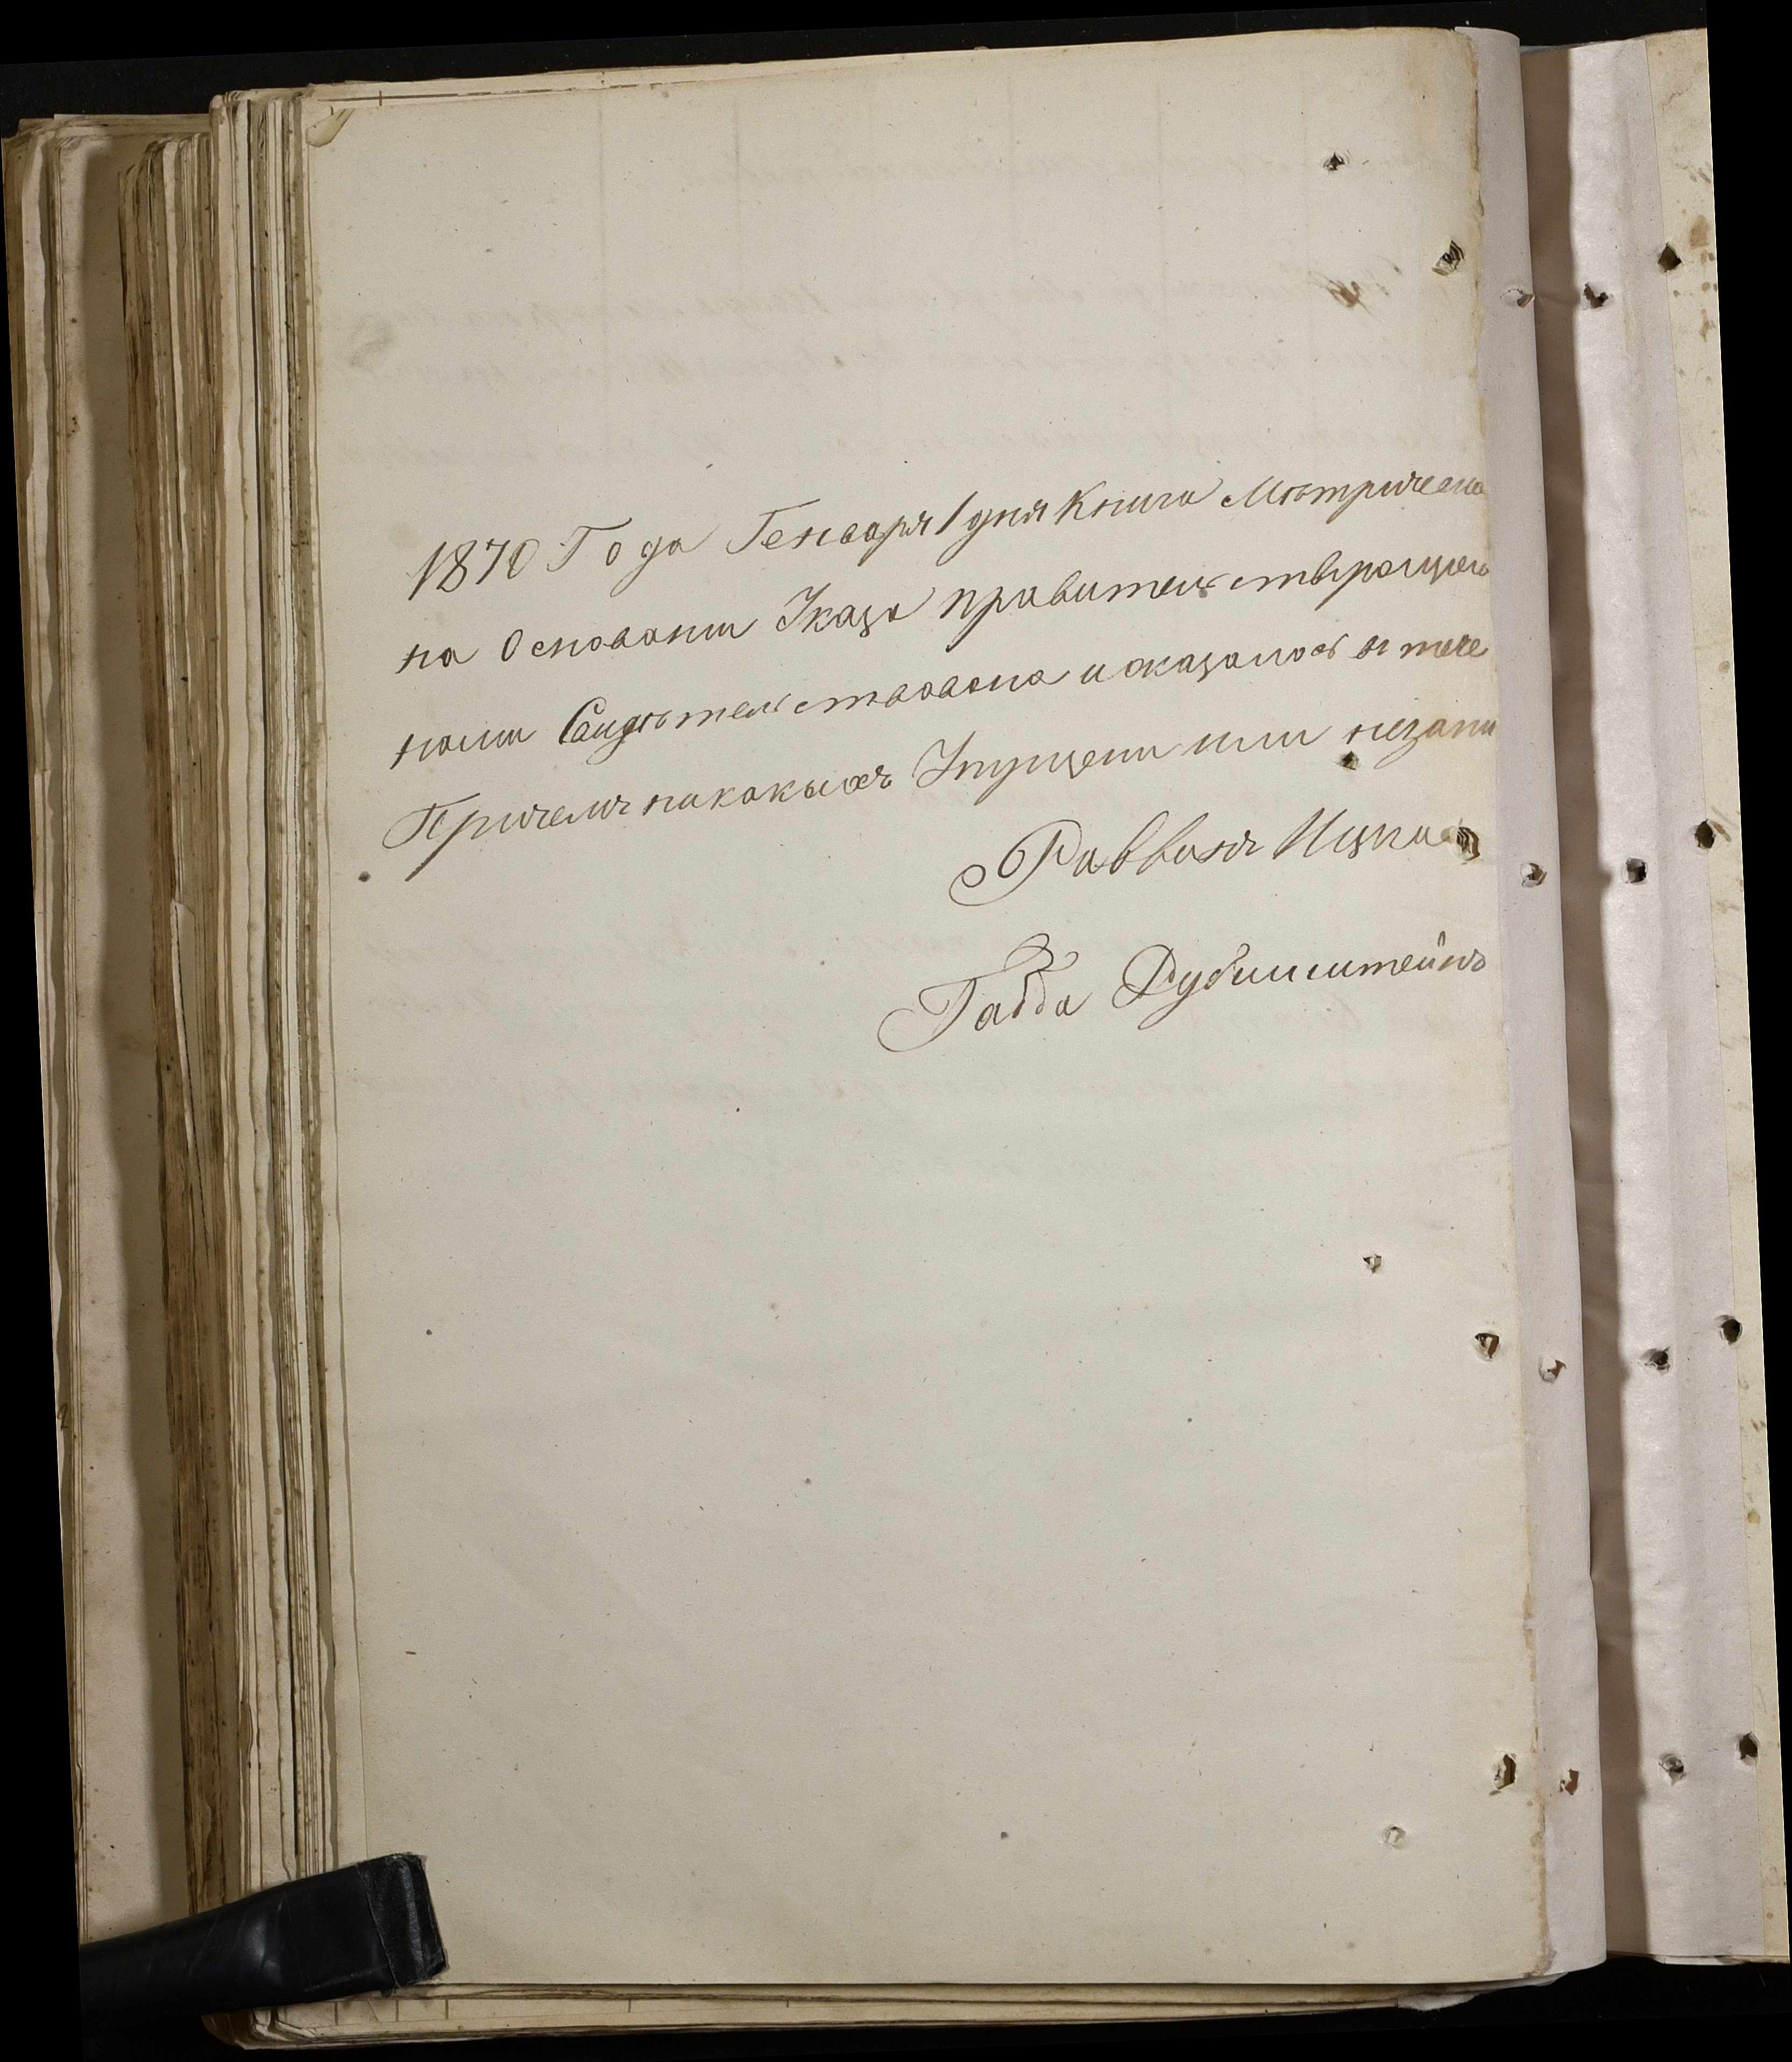 1870 Года Генваря 1 дня Книга Метрическа
на Основании Указа правительствующего
нами Свидетельствована и оказалось в тече
Причем никаких Упущени или незапи
Раввин Ицка
Габба Рубинштейнъ